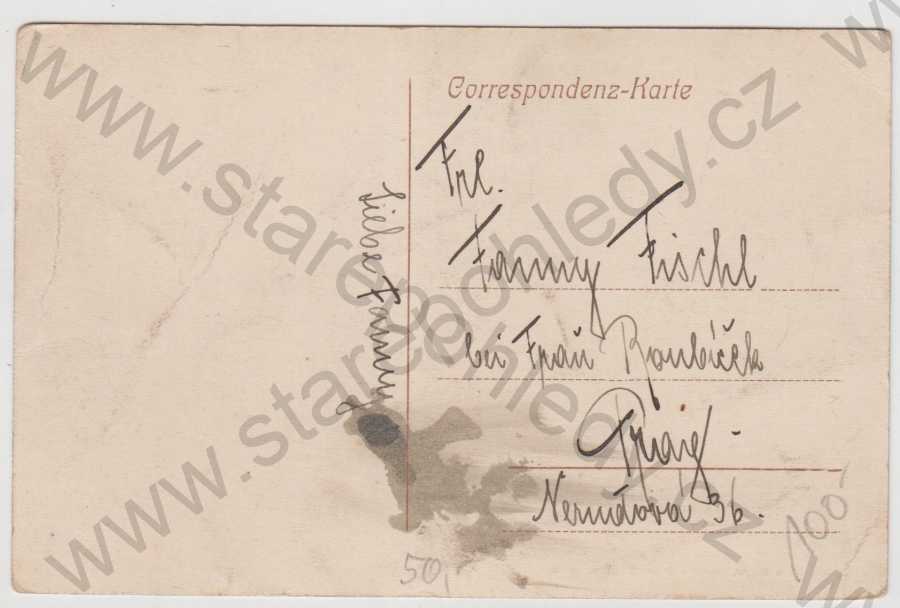 Correspondenz-Karte
Frl.
Fanny Fischl
bei Frau Roubíček
Prag
Nerudova 36.
Liebe Fanny
50,
100
www.starepohledy.cz
www.starepohledy.cz